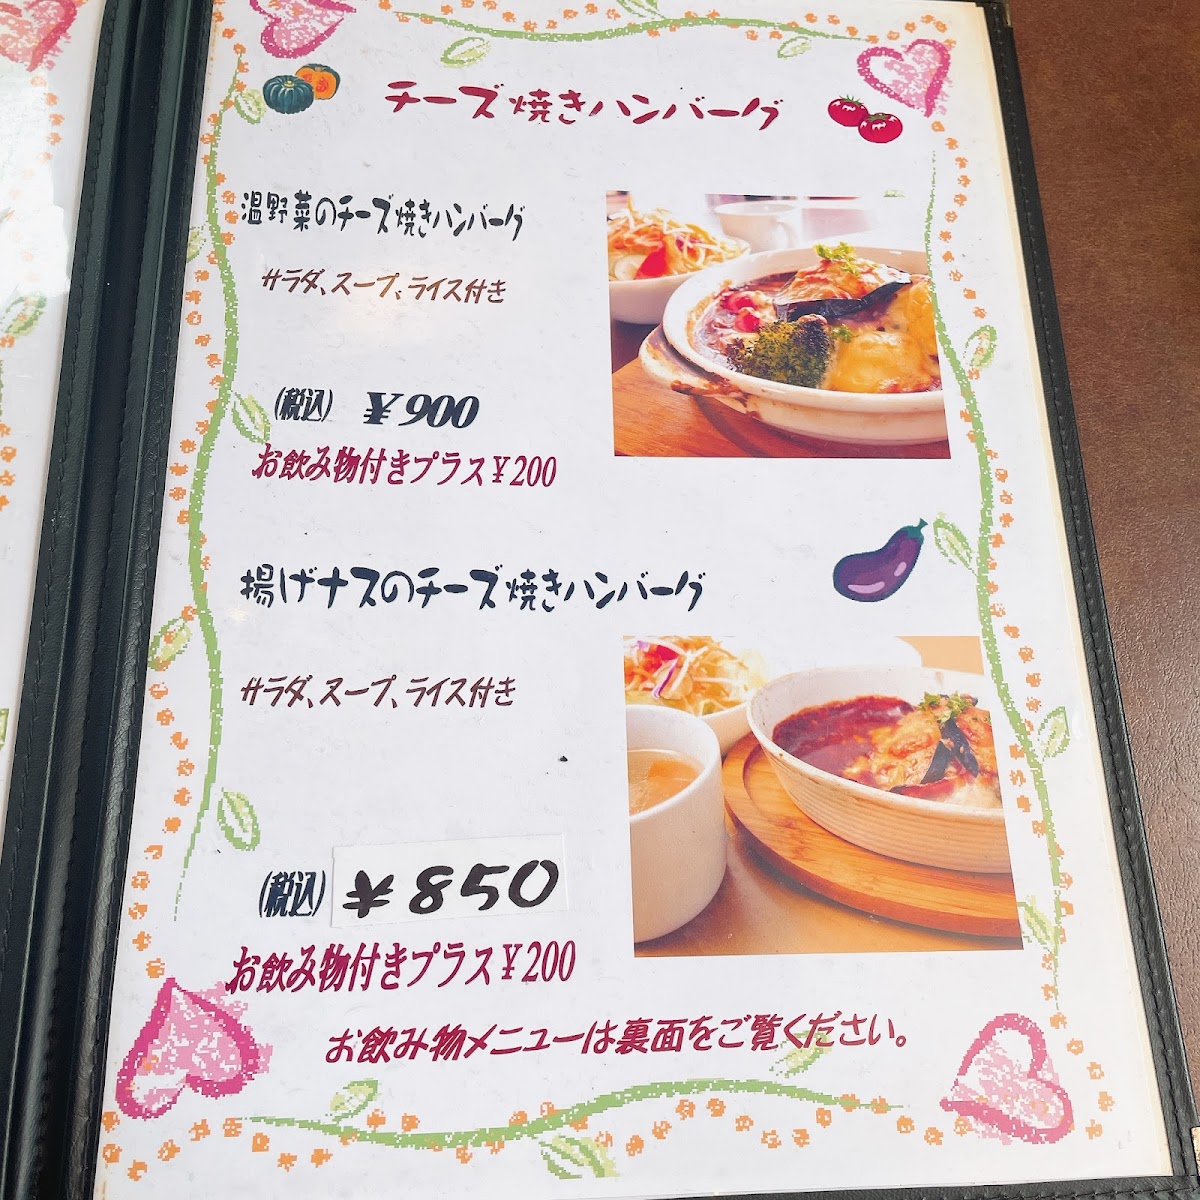 チーズ焼きハンバーグ
温野菜のチーズ焼きハンバーグ
サラダ、スープ、ライス付き
(税込) ￥900
お飲み物付きプラス￥200
揚げナスのチーズ焼きハンバーグ
サラダ、スープ、ライス付き
(税込) ￥850
お飲み物付きプラス￥200
お飲み物メニューは裏面をご覧ください。